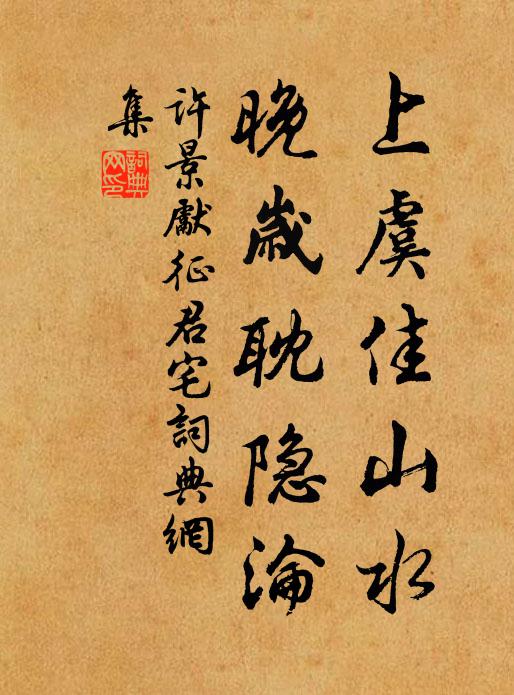 上虞佳山水
晚岁耽隐沦
许景献征君宅词典网
集
词典网印